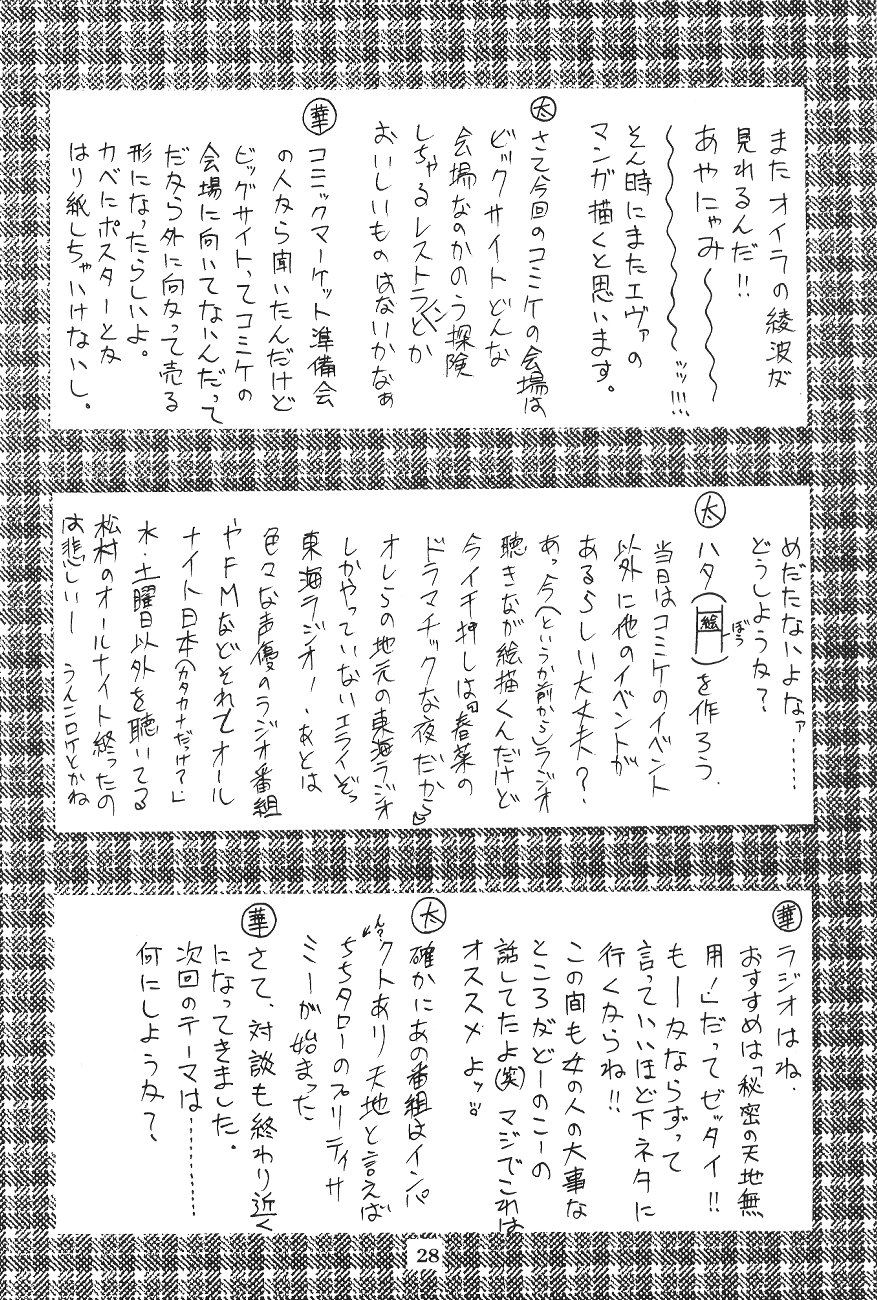 またオイラの綾波が
見れるんだ!!
あやにゃみ〜〜〜
〜〜〜〜〜ッッ!!!
そん時にまたエヴァの
マンガ描くと思います。
太
さて今回のコミケの会場は
ビックサイトどんな
会場なのかのう探険
しちゃるレストランとか
おいしいものはないかなぁ
華
コミックマーケット準備会
の人から聞いたんだけど
ビッグサイトってコミケの
会場に向いてないんだって
だから外に向かって売る
形になったらしいよ。
カベにポスターとか
はり紙しちゃいけないし。
めだたないよなァ……
どうしようか?
太
ハタ(絵 ぼう)を作ろう.
当日はコミケのイベント
以外に他のイベントが
あるらしい大丈夫?
あっ今(というか前から)ラジオ
聴きなが絵描くんだけど
今イチ押しは「春菜の
ドラマチックな夜だから」
オレらの地元の東海ラジオ
しかやっていないエライぞっ
東海ラジオ!、あとは
色々な声優のラジオ番組
やFMなどそれとオール
ナイト日本(カタカナだっけ?)
水・土曜日以外を聴いてる
松村のオールナイト終ったの
は悲しいー うんこロケとかね
華
ラジオはね.
おすすめは「秘密の天地無
用!」だってゼッタイ!!
もーかならずって
言っていいほど下ネタに
行くからね!!
この間も女の人の大事な
ところがどーのこーの
話してたよ(笑)マジでこれは
オススメよッ
太
確かにあの番組はインパ
クトあり天地と言えば
ちちタローのプリティサ
ミーが始まった
華
さて、対談も終わり近く
になってきました。
次回のテーマは………
何にしようか?
28